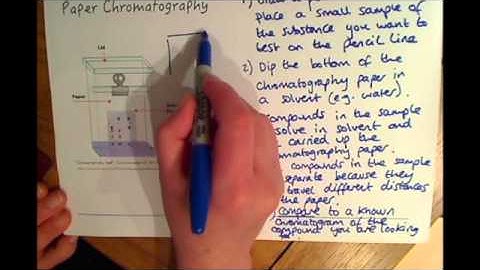 Paper Chromatography
Lid
Paper
place a small sample of
the substance you want to
test on the pencil line
2) Dip the bottom of the
chromatography paper in
a solvent (e.g. water).
compounds in the sample
solve in solvent and
carried up the
matography paper.
compounds in the sample
separate because they
travel different distances
the paper.
compare to a known
chromatogram of the
compound you are looking